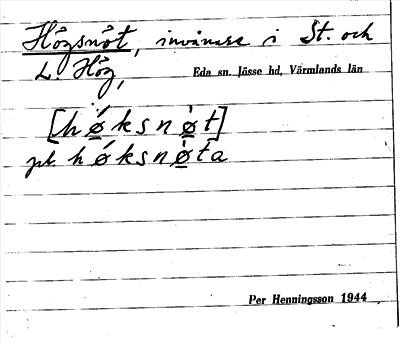 Högsnöt, invånare i St. och
L. Hög,
Eda sn. Jösse hd, Värmlands län
[hø̤ksnø̤t]
pl. hø̤ksnø̤ta
Per Henningsson 1944